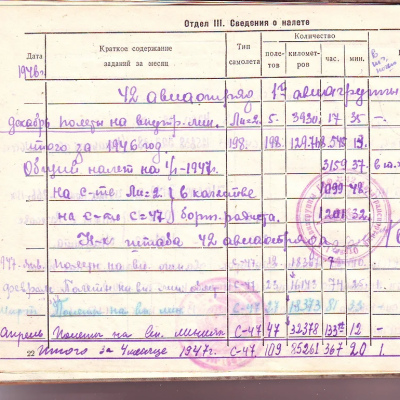 Отдел III. Сведения о налете
Дата Краткое содержание заданий за месяц Тип самолета Количество поле-тов километ-ров час. мин.
1946г.
42 авиаотряд 1й авиагруппы
декабрь полеты на внутр. лин. Ли-2. 5. 3930 17 35 -.
Итого за 1946 год. 198. 198 129748 548 13.
Общий налет на 1/I-1947. 3159 37
на с-те Ли-2 } в качестве 1099 48
на с-те С-47 } борт. радиста. 1201 32
Н-к штаба 42 авиаотряда
947. янв. Полеты на вн. С-47
феврал Полеты на вн. лин. С-47
март Полеты на вн. лин С-47 27 18373 81
апрель Полеты на вн. линиях С-47 47 32378 133 12 -
22 Итого за 4 месяца 1947г. С-47 109 85261 367 20 1.